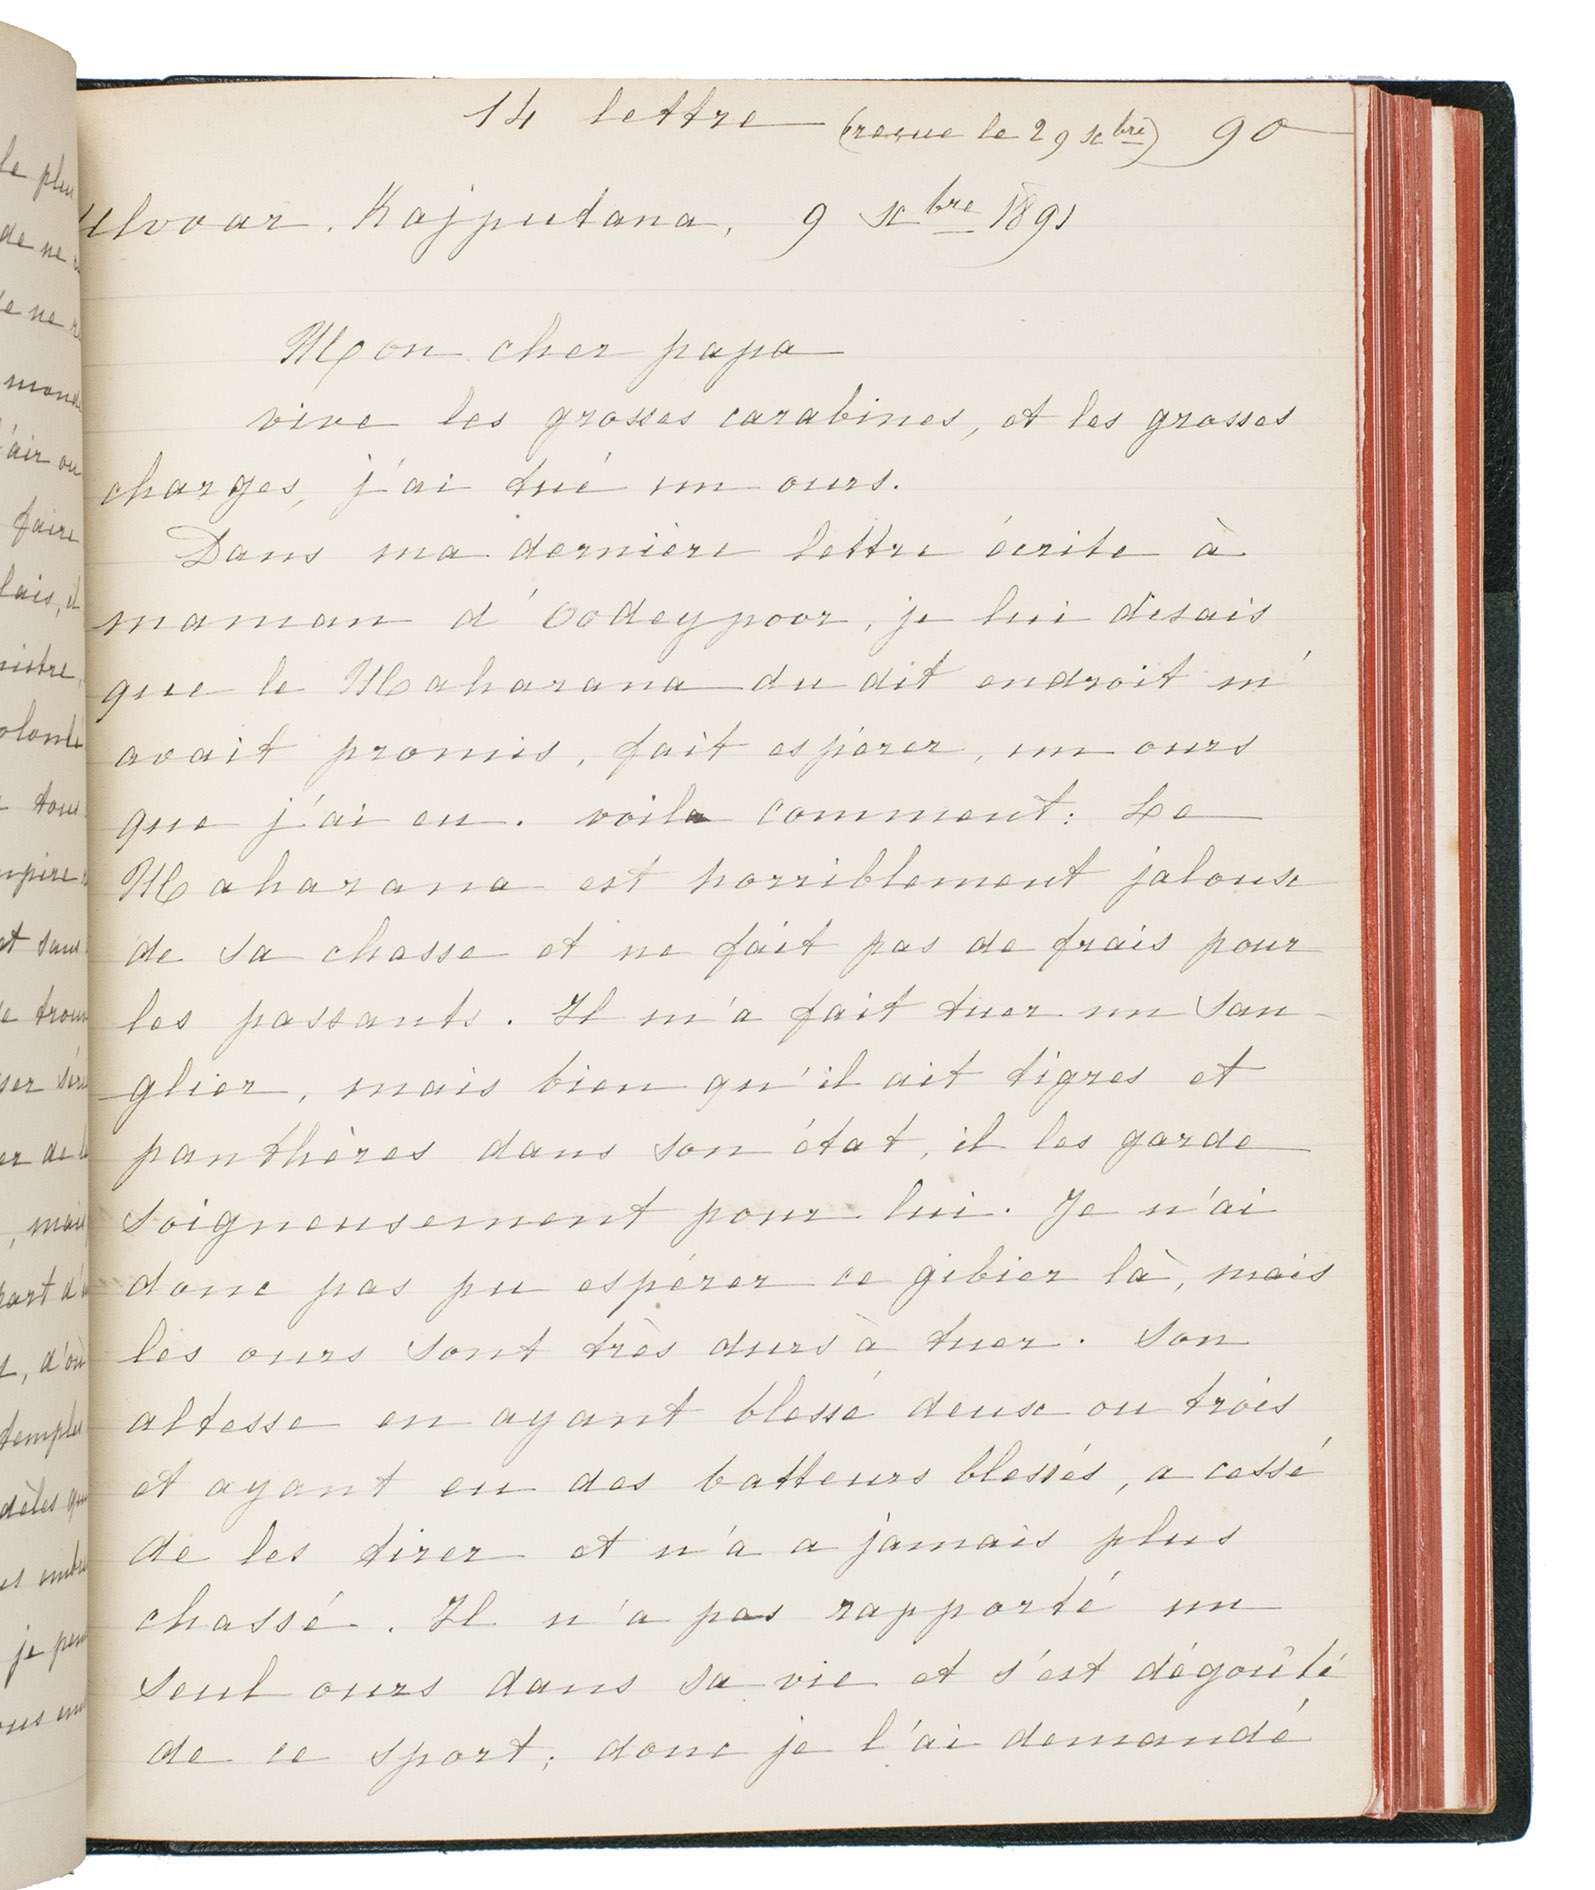 14 lettre (reçue le 29 xbre) 90
Ulvoar. Rajputana, 9 xbre 1891
Mon cher papa
vive les grosses carabines, et les grosses
charges, j'ai tué un ours.
Dans ma dernière lettre écrite à
maman d'Oodeypoor, je lui disais
que le Maharana du dit endroit m'
avait promis, fait espérer, un ours
que j'ai eu. voila comment: Le
Maharana est horriblement jaloux
de sa chasse et ne fait pas de frais pour
les passants. Il m'a fait tuer un san-
glier, mais bien qu'il ait tigres et
panthères dans son état, il les garde
soigneusement pour lui. Je n'ai
donc pas pu espérer ce gibier là, mais
les ours sont très durs à tuer. Son
altesse en ayant blessé deux ou trois
et ayant eu des batteurs blessés, a cessé
de les tirer et n'a a jamais plus
chassé. Il n'a pas rapporté un
seul ours dans sa vie et s'est dégoûté
de ce sport; donc je l'ai demandé
le plus
de ne
de ne
monde
l'air ou
faire
olonté
tous
et sans
mais
d'où
temples
je